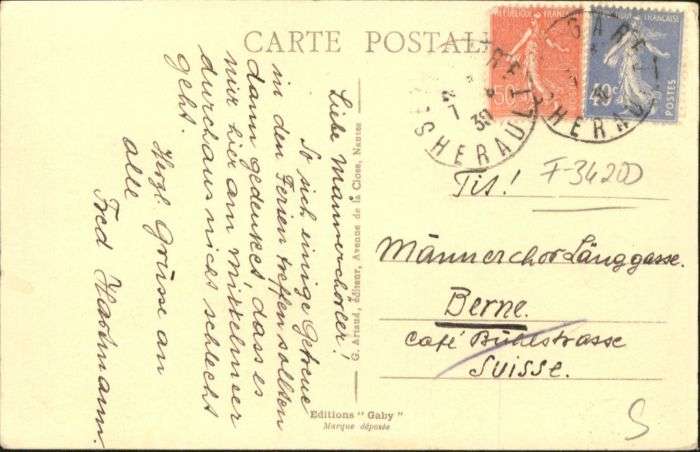 CARTE POSTALE
RÉPUBLIQUE FRANÇAISE
50c
40c
POSTES
GARE
HERAULT
30
Tit! F-34200
Männerchor Länggasse.
Berne.
Café Bühlstrasse
Suisse.
S
Liebe Männerchörler!
So sich einige Getreue
in den Ferien treffen sollten
dann gedenket, dass es
mir hier am Mittelmeer
durchaus nicht schlecht
geht.
Herzl. Grüsse an
alle
Fred Hartmann.
G. Artaud, Éditeur, Avenue de la Close, Nantes
Editions "Gaby"
Marque déposée